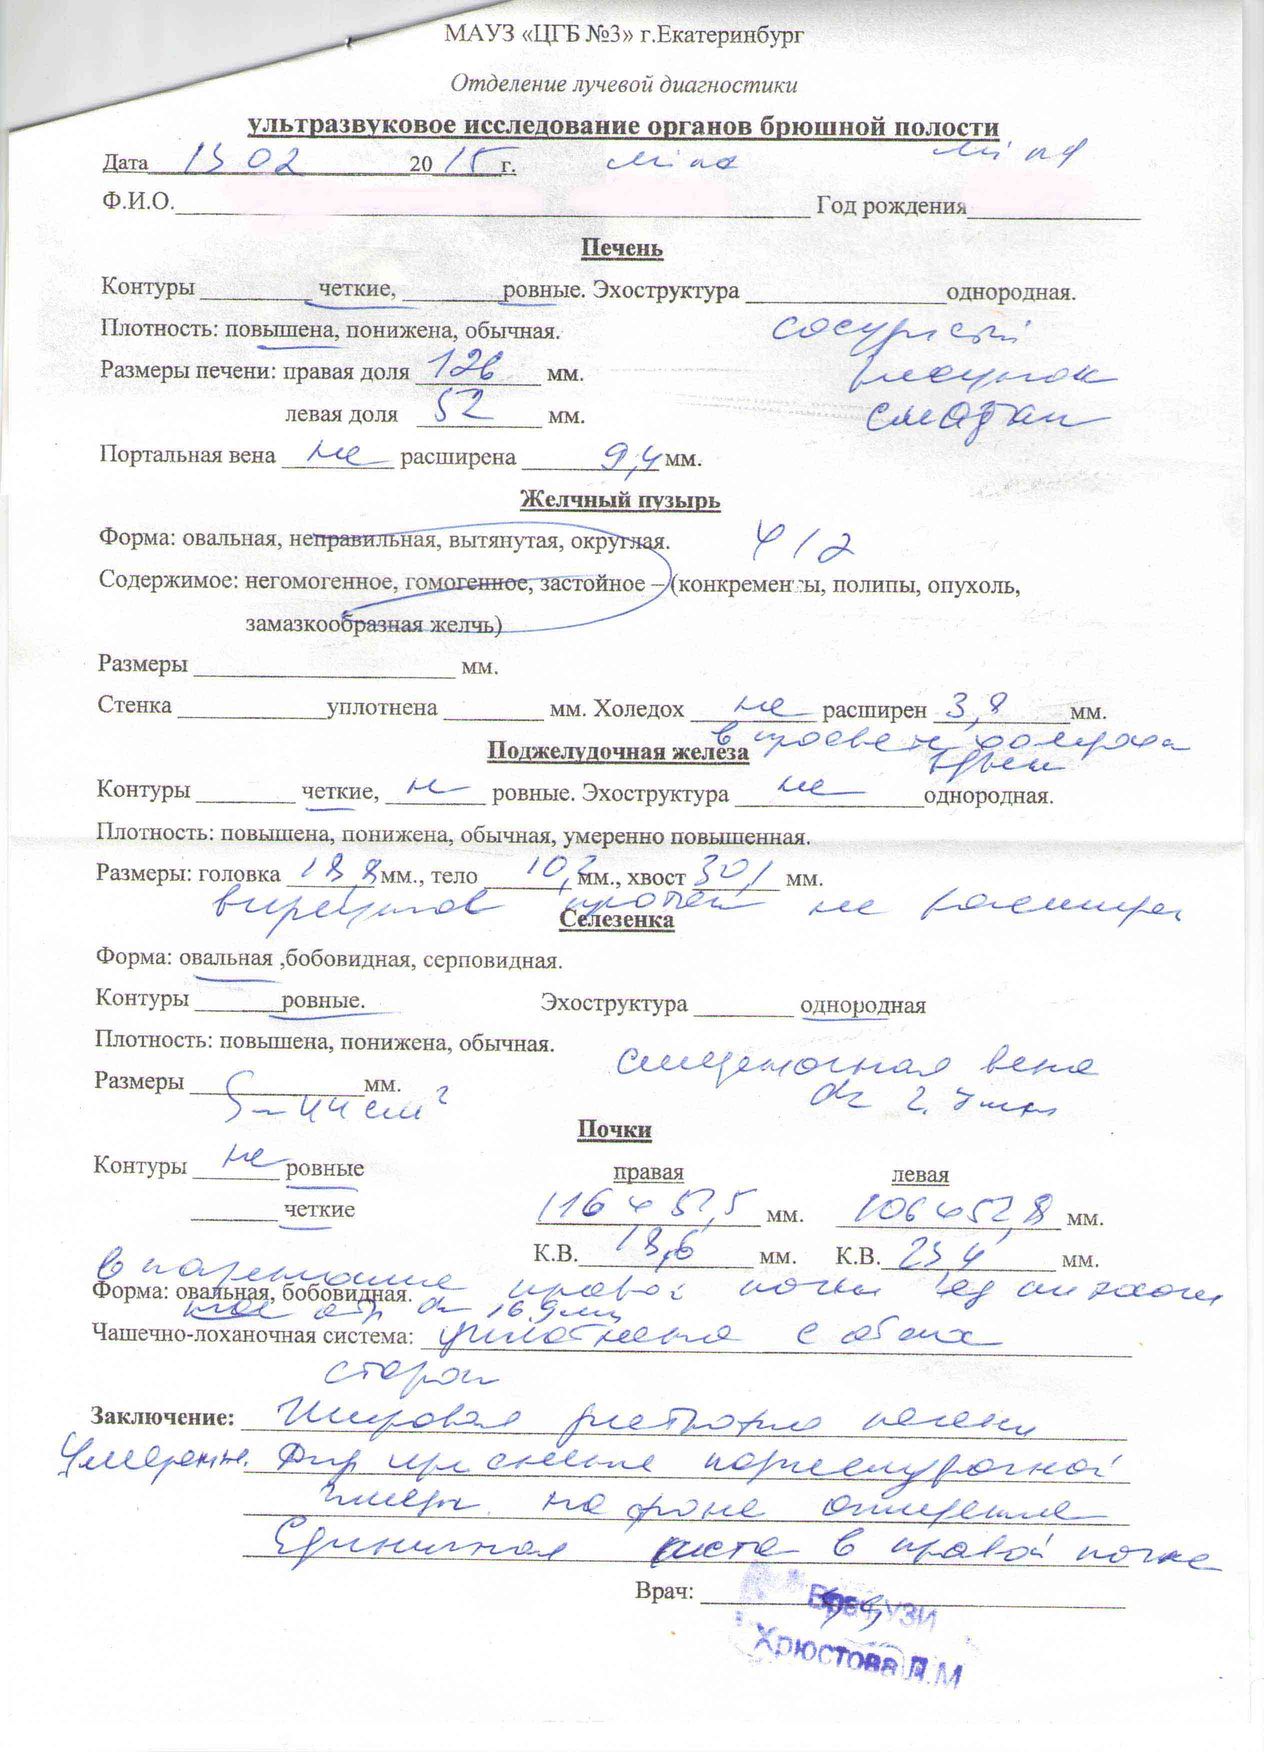 МАУЗ «ЦГБ №3» г.Екатеринбург
Отделение лучевой диагностики
ультразвуковое исследование органов брюшной полости
Дата 13 02 2015 г.
Ф.И.О. Год рождения
Печень
Контуры четкие, ровные. Эхоструктура однородная.
Плотность: повышена, понижена, обычная. сосудистый
Размеры печени: правая доля 126 мм. рисунок
левая доля 52 мм. смазан
Портальная вена не расширена 9,4 мм.
Желчный пузырь
Форма: овальная, неправильная, вытянутая, округлая.
Содержимое: негомогенное, гомогенное, застойное – (конкременты, полипы, опухоль,
замазкообразная желчь)
Размеры мм.
Стенка уплотнена мм. Холедох не расширен 3,8 мм.
в просвете холедоха
Поджелудочная железа
Контуры четкие, не ровные. Эхоструктура не однородная.
Плотность: повышена, понижена, обычная, умеренно повышенная.
Размеры: головка 18,8 мм., тело 10,2 мм., хвост 30,1 мм.
вирсунгов проток не расширен
Селезенка
Форма: овальная ,бобовидная, серповидная.
Контуры ровные. Эхоструктура однородная
Плотность: повышена, понижена, обычная.
селезеночная вена
Размеры мм.
S – 44 см²
Почки
Контуры не ровные правая левая
четкие 116 х 51,5 мм. 106 х 52,8 мм.
К.В. 18,6 мм. К.В. 23,4 мм.
в паренхиме правой почки
Форма: овальная, бобовидная.
16,9 мм
Чашечно-лоханочная система: уплотнена с обеих
сторон
Заключение: Жировая дистрофия печени
Умеренн. Диф изменения поджелудочной
железы на фоне ожирения
Единичная киста в правой почке
Врач:
Врач УЗИ
Хрюстова Л.М